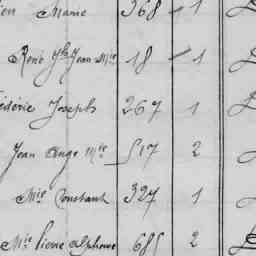 Marie 368 1
René Jean Mie 18 1
Joseph 267 1
Jean Ange Mie 517 2
Mie Constant 327 1
Mie Pierre Alphonse 685 2